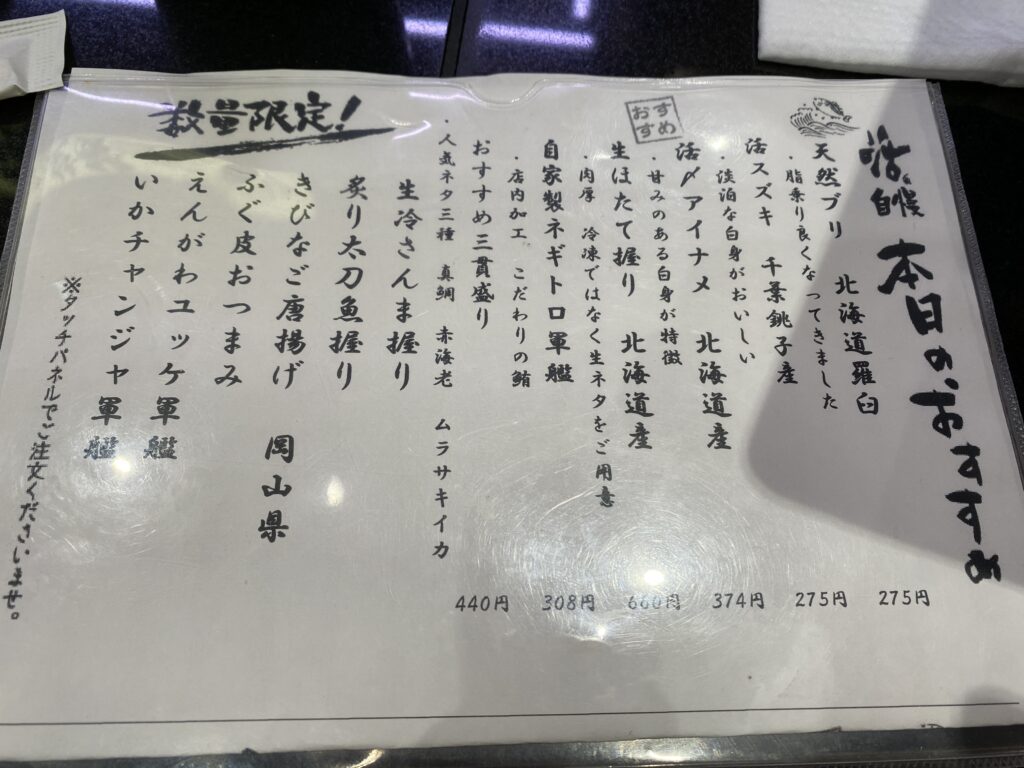 活〆自慢 本日のおすすめ
天然ブリ 北海道羅臼
・脂乗り良くなってきました
275円
活スズキ 千葉銚子産
・淡泊な白身がおいしい
275円
おすすめ
活〆アイナメ 北海道産
・甘みのある白身が特徴
374円
生ほたて握り 北海道産
・肉厚 冷凍ではなく生ネタをご用意
660円
自家製ネギトロ軍艦
・店内加工 こだわりの鮪
308円
おすすめ三貫盛り
・人気ネタ三種 真鯛 赤海老 ムラサキイカ
440円
数量限定!
生冷さんま握り
炙り太刀魚握り
きびなご唐揚げ 岡山県
ふぐ皮おつまみ
えんがわユッケ軍艦
いかチャンジャ軍艦
※タッチパネルでご注文くださいませ。